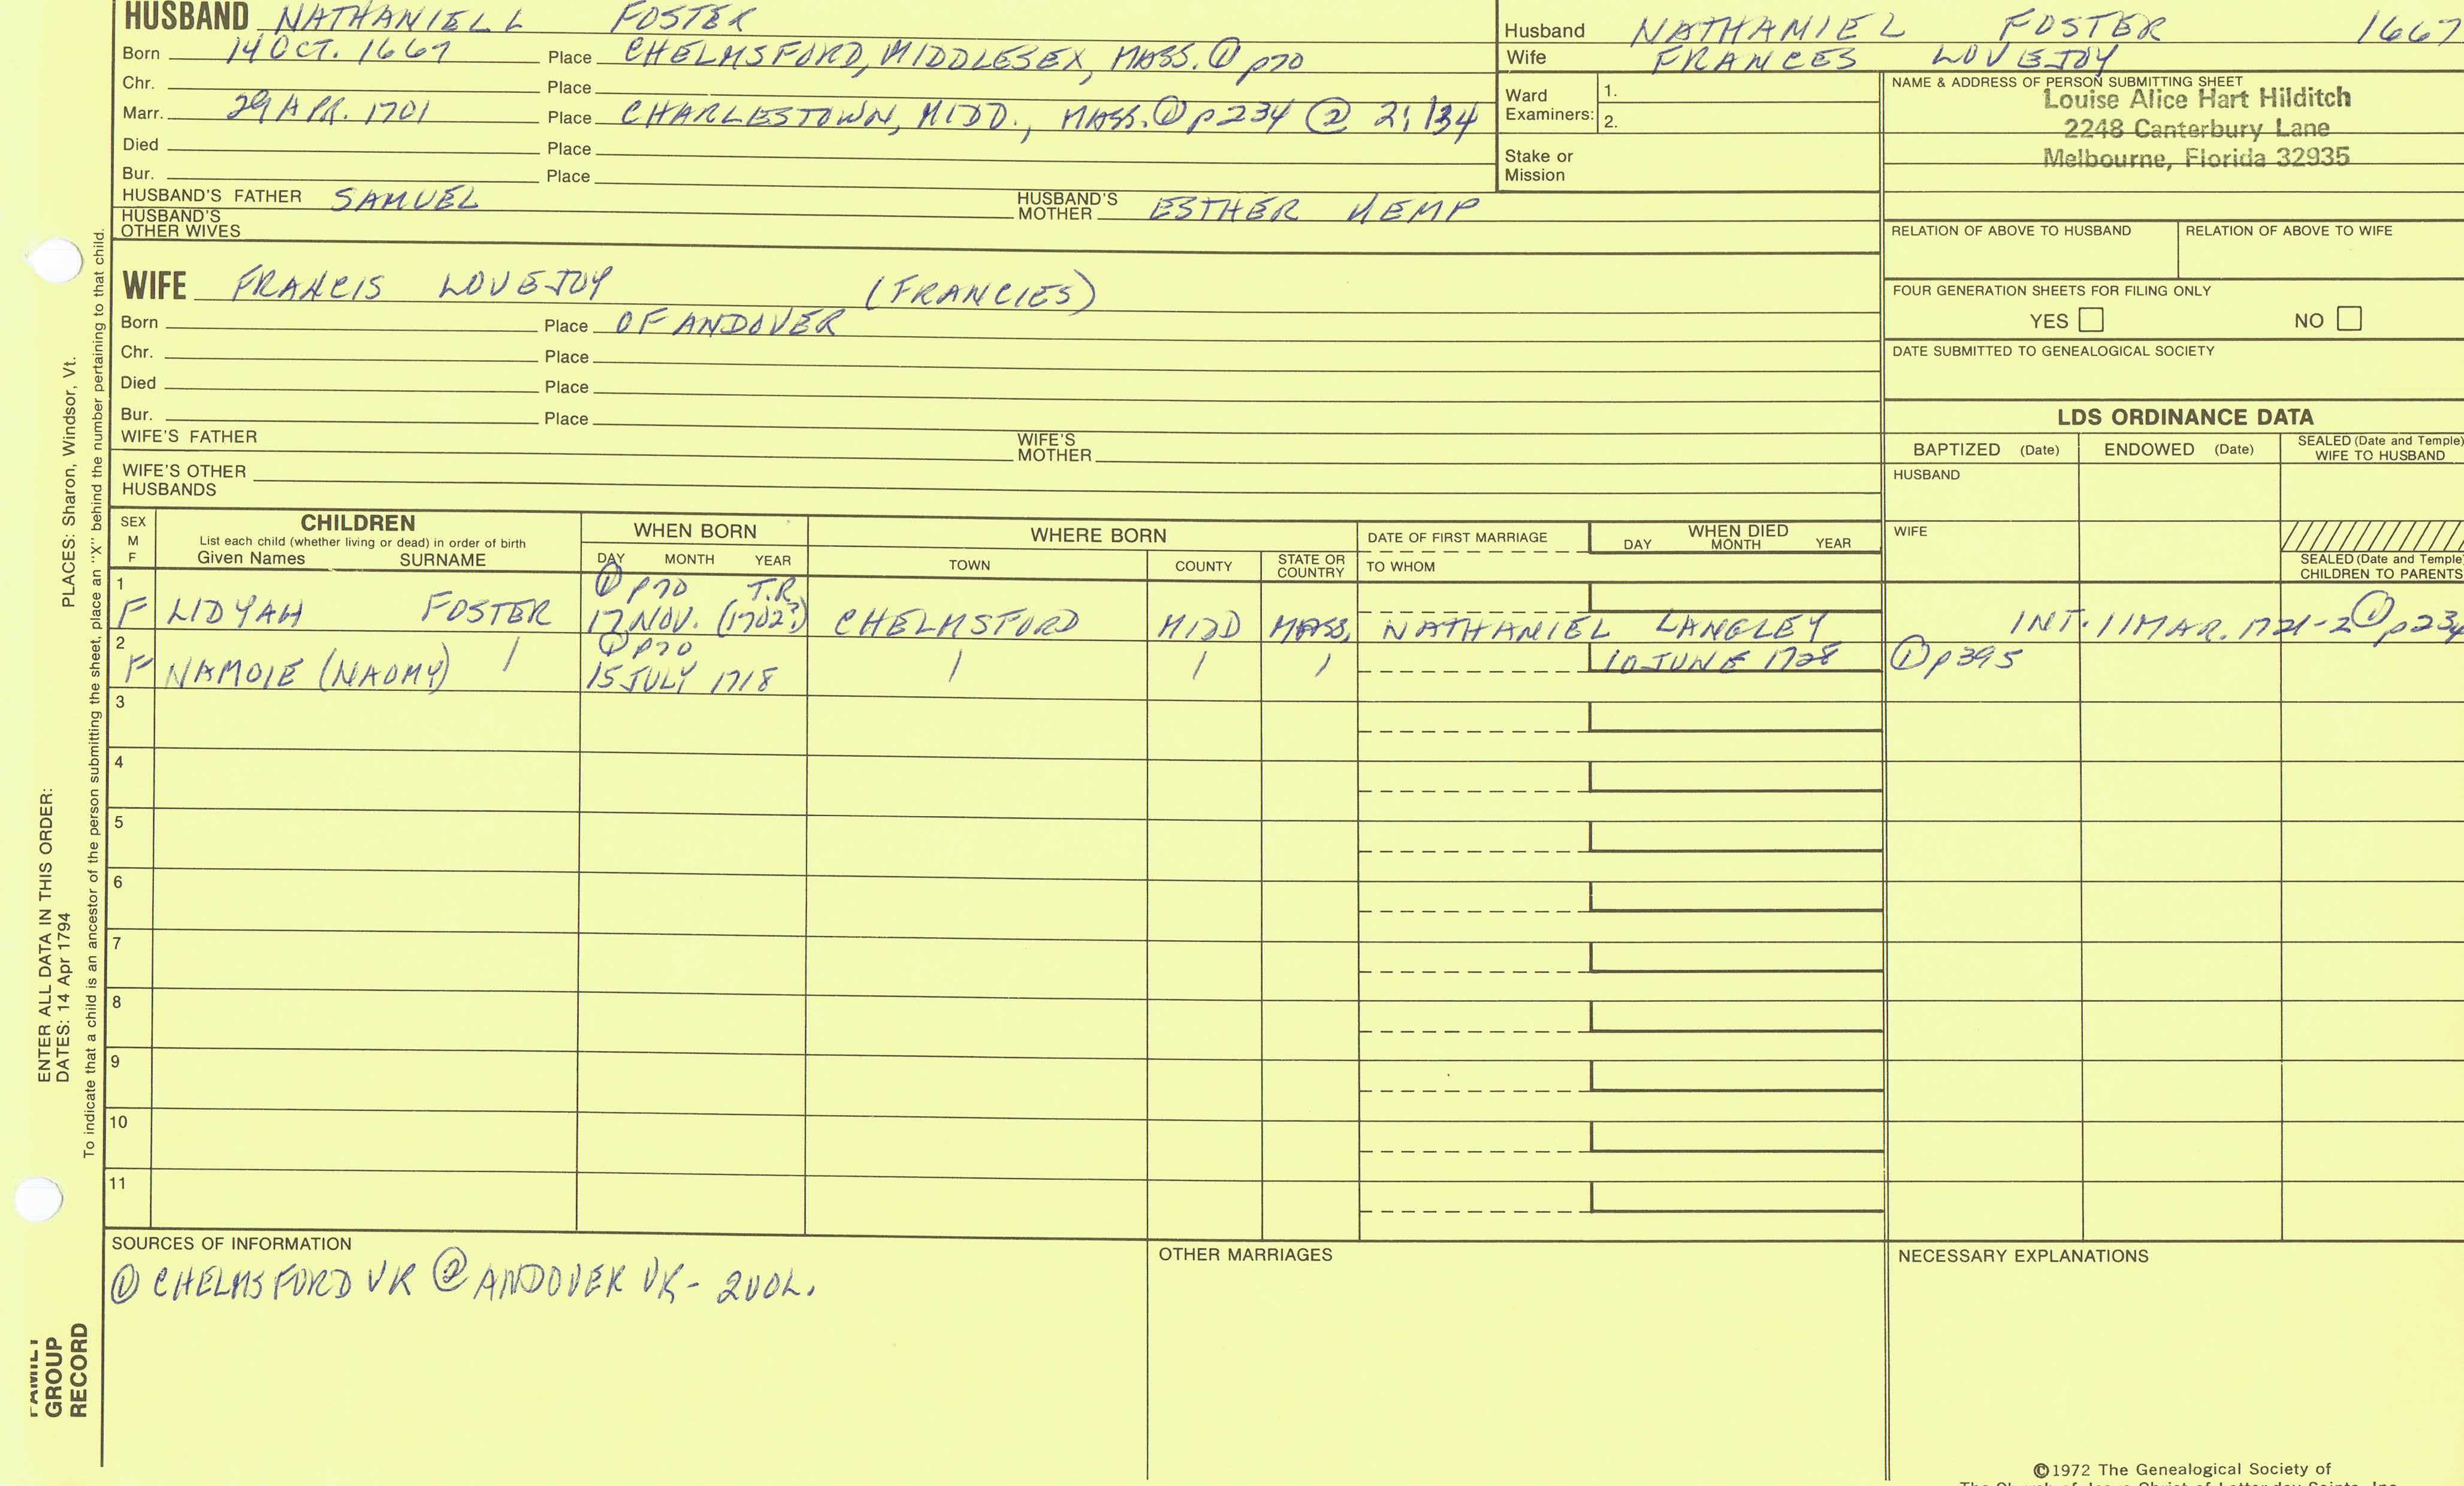 HUSBAND NATHANIELL FOSTER
Born 14 OCT. 1667 Place CHELMSFORD, MIDDLESEX, MASS. ① p70
Chr. Place
Marr. 29 APR. 1701 Place CHARLESTOWN, MIDD., MASS. ① p234 ② 2;134
Died Place
Bur. Place
HUSBAND'S FATHER SAMUEL HUSBAND'S MOTHER ESTHER KEMP
HUSBAND'S OTHER WIVES
Husband NATHANIEL FOSTER 1667
Wife FRANCES LOVEJOY
Ward Examiners: 1.
2.
Stake or Mission
NAME & ADDRESS OF PERSON SUBMITTING SHEET
Louise Alice Hart Hilditch
2248 Canterbury Lane
Melbourne, Florida 32935
RELATION OF ABOVE TO HUSBAND RELATION OF ABOVE TO WIFE
FOUR GENERATION SHEETS FOR FILING ONLY
YES NO
DATE SUBMITTED TO GENEALOGICAL SOCIETY
WIFE FRANCIS LOVEJOY (FRANCIES)
Born Place OF ANDOVER
Chr. Place
Died Place
Bur. Place
WIFE'S FATHER WIFE'S MOTHER
WIFE'S OTHER HUSBANDS
LDS ORDINANCE DATA
BAPTIZED (Date) ENDOWED (Date) SEALED (Date and Temple) WIFE TO HUSBAND
HUSBAND
WIFE
SEALED (Date and Temple) CHILDREN TO PARENTS
SEX M F
CHILDREN
List each child (whether living or dead) in order of birth
Given Names SURNAME
WHEN BORN
DAY MONTH YEAR
WHERE BORN
TOWN COUNTY STATE OR COUNTRY
DATE OF FIRST MARRIAGE
TO WHOM
WHEN DIED
DAY MONTH YEAR
1 ① p70 T.R.
F LIDYAH FOSTER 17 NOV. (1702?) CHELMSFORD MIDD MASS, NATHANIEL LANGLEY INT. 11 MAR. 1721-2 ① p234
2 ① p70
F NAMOIE (NAOMY) / 15 JULY 1718 / / / 10 JUNE 1728 ① p395
3
4
5
6
7
8
9
10
11
SOURCES OF INFORMATION
① CHELMSFORD VR ② ANDOVER VR - 2 VOL.
OTHER MARRIAGES
NECESSARY EXPLANATIONS
©1972 The Genealogical Society of
The Church of Jesus Christ of Latter-day Saints, Inc.
PLACES: Sharon, Windsor, Vt.
To indicate that a child is an ancestor of the person submitting the sheet, place an "X" behind the number pertaining to that child.
ENTER ALL DATA IN THIS ORDER:
DATES: 14 Apr 1794
FAMILY
GROUP
RECORD